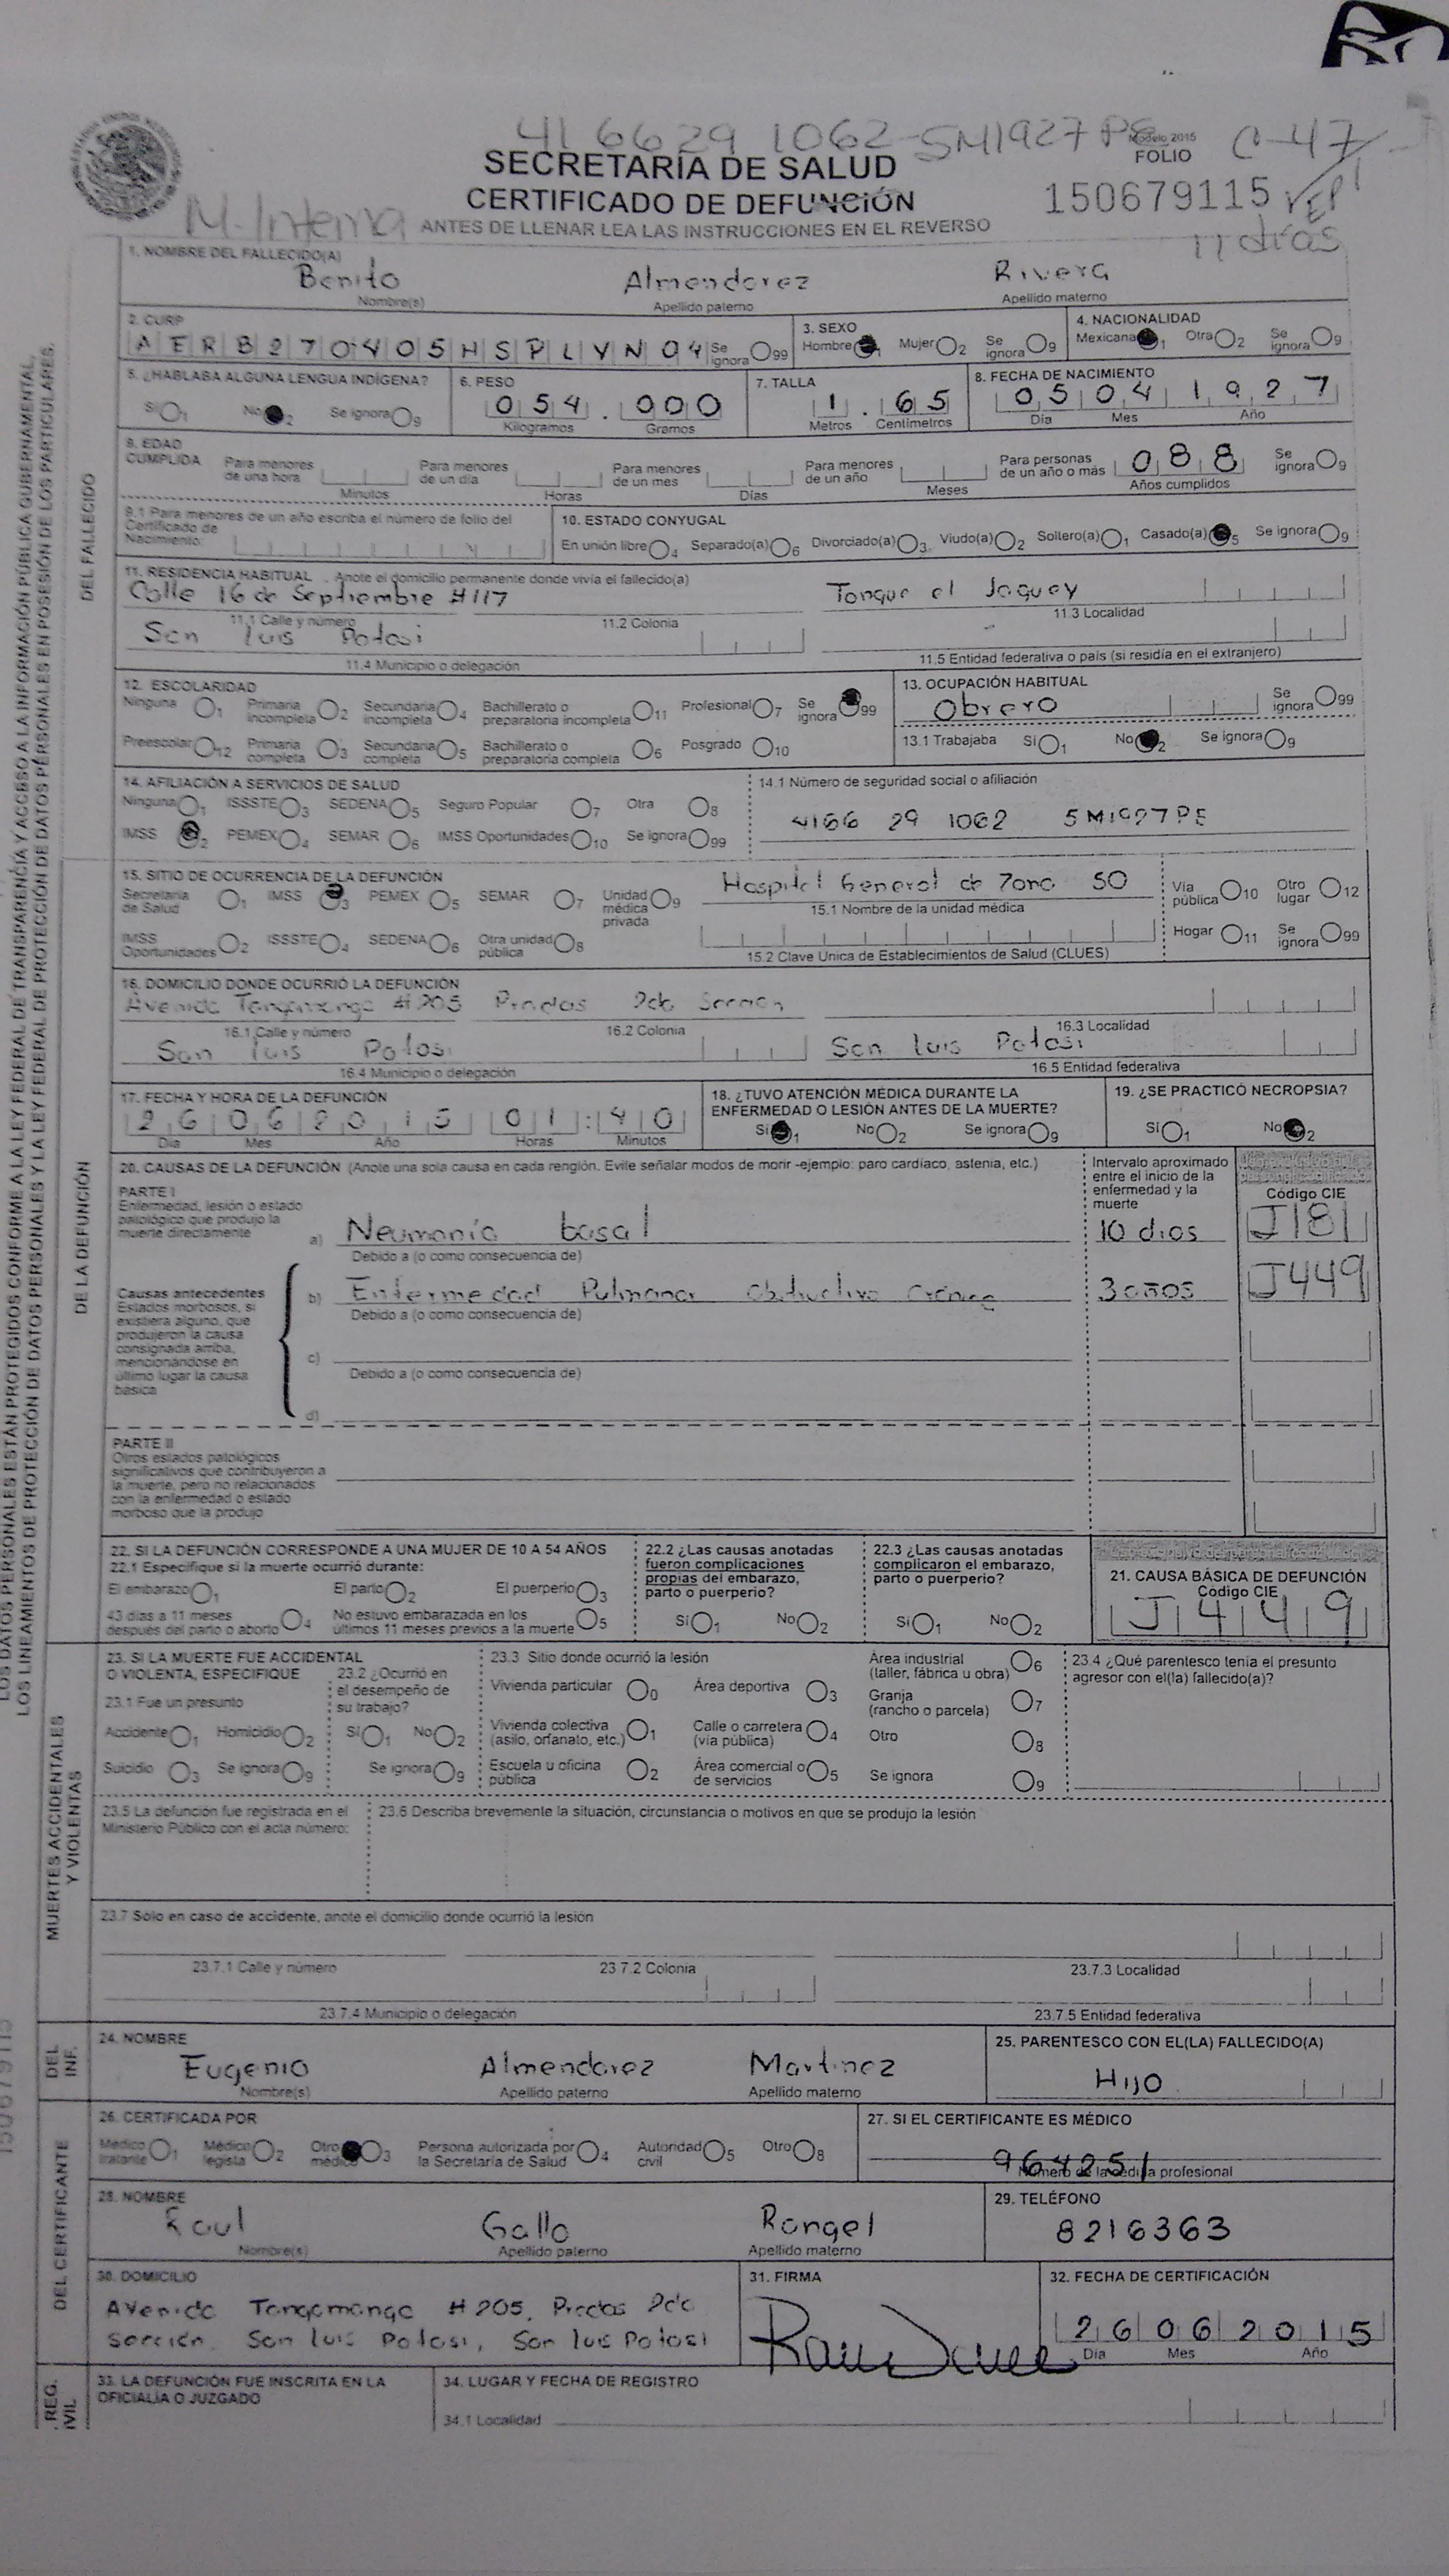 41 6629 1062-5M1927PE
Modelo 2015
SECRETARÍA DE SALUD
FOLIO
C-47
CERTIFICADO DE DEFUNCIÓN
150679115
M. Interna
ANTES DE LLENAR LEA LAS INSTRUCCIONES EN EL REVERSO
11 días
1. NOMBRE DEL FALLECIDO(A)
Benito Almendarez Rivera
Nombre(s) Apellido paterno Apellido materno
2. CURP
AERB270405HSPLVN04 Se ignora 99
3. SEXO
Hombre 1 Mujer 2 Se ignora 9
4. NACIONALIDAD
Mexicana 1 Otra 2 Se ignora 9
5. ¿HABLABA ALGUNA LENGUA INDÍGENA?
Sí 1 No 2 Se ignora 9
6. PESO
054 . 000
Kilogramos Gramos
7. TALLA
1 . 65
Metros Centímetros
8. FECHA DE NACIMIENTO
05 04 1927
Día Mes Año
9. EDAD CUMPLIDA
Para menores de una hora
Minutos
Para menores de un día
Horas
Para menores de un mes
Días
Para menores de un año
Meses
Para personas de un año o más 088
Años cumplidos
Se ignora 9
9.1 Para menores de un año escriba el número de folio del
Certificado de
Nacimiento:
10. ESTADO CONYUGAL
En unión libre 4 Separado(a) 6 Divorciado(a) 3 Viudo(a) 2 Soltero(a) 1 Casado(a) 5 Se ignora 9
11. RESIDENCIA HABITUAL . Anote el domicilio permanente donde vivía el fallecido(a)
Calle 16 de Septiembre #117 Tanque el Jaguey
11.1 Calle y número 11.2 Colonia 11.3 Localidad
San Luis Potosi
11.4 Municipio o delegación 11.5 Entidad federativa o país (si residía en el extranjero)
12. ESCOLARIDAD
Ninguna 1 Primaria incompleta 2 Secundaria incompleta 4 Bachillerato o preparatoria incompleta 11 Profesional 7 Se ignora 99
Preescolar 12 Primaria completa 3 Secundaria completa 5 Bachillerato o preparatoria completa 6 Posgrado 10
13. OCUPACIÓN HABITUAL
Obrero Se ignora 99
13.1 Trabajaba Sí 1 No 2 Se ignora 9
14. AFILIACIÓN A SERVICIOS DE SALUD
Ninguna 1 ISSSTE 3 SEDENA 5 Seguro Popular 7 Otra 8
IMSS 2 PEMEX 4 SEMAR 6 IMSS Oportunidades 10 Se ignora 99
14.1 Número de seguridad social o afiliación
4166 29 1062 5M1927PE
15. SITIO DE OCURRENCIA DE LA DEFUNCIÓN
Secretaría de Salud 1 IMSS 3 PEMEX 5 SEMAR 7 Unidad médica privada 9
IMSS Oportunidades 2 ISSSTE 4 SEDENA 6 Otra unidad pública 8
Hospital General de Zona 50
15.1 Nombre de la unidad médica
15.2 Clave Única de Establecimientos de Salud (CLUES)
Vía pública 10 Otro lugar 12
Hogar 11 Se ignora 99
16. DOMICILIO DONDE OCURRIÓ LA DEFUNCIÓN
Avenida Tangamanga #205 Prados 2da Seccion
16.1 Calle y número 16.2 Colonia 16.3 Localidad
San Luis Potosi San Luis Potosi
16.4 Municipio o delegación 16.5 Entidad federativa
17. FECHA Y HORA DE LA DEFUNCIÓN
26 06 2015 01:40
Día Mes Año Horas Minutos
18. ¿TUVO ATENCIÓN MÉDICA DURANTE LA
ENFERMEDAD O LESIÓN ANTES DE LA MUERTE?
Sí 1 No 2 Se ignora 9
19. ¿SE PRACTICÓ NECROPSIA?
Sí 1 No 2
20. CAUSAS DE LA DEFUNCIÓN (Anote una sola causa en cada renglón. Evite señalar modos de morir -ejemplo: paro cardiaco, astenia, etc.)
Intervalo aproximado
entre el inicio de la
enfermedad y la
muerte
Código CIE
PARTE I
Enfermedad, lesión o estado
patológico que produjo la
muerte directamente
a) Neumonía basal 10 dias J181
Debido a (o como consecuencia de)
Causas antecedentes
Estados morbosos, si
existiera alguno, que
produjeron la causa
consignada arriba,
mencionándose en
último lugar la causa
básica
b) Enfermedad Pulmonar Obstructiva Crónica 3 años J449
Debido a (o como consecuencia de)
c)
Debido a (o como consecuencia de)
d)
PARTE II
Otros estados patológicos
significativos que contribuyeron a
la muerte, pero no relacionados
con la enfermedad o estado
morboso que la produjo
22. SI LA DEFUNCIÓN CORRESPONDE A UNA MUJER DE 10 A 54 AÑOS
22.1 Especifique si la muerte ocurrió durante:
El embarazo 1 El parto 2 El puerperio 3
43 días a 11 meses después del parto o aborto 4 No estuvo embarazada en los últimos 11 meses previos a la muerte 5
22.2 ¿Las causas anotadas
fueron complicaciones
propias del embarazo,
parto o puerperio?
Sí 1 No 2
22.3 ¿Las causas anotadas
complicaron el embarazo,
parto o puerperio?
Sí 1 No 2
21. CAUSA BÁSICA DE DEFUNCIÓN
Código CIE
J449
23. SI LA MUERTE FUE ACCIDENTAL
O VIOLENTA, ESPECIFIQUE
23.1 Fue un presunto
Accidente 1 Homicidio 2
Suicidio 3 Se ignora 9
23.2 ¿Ocurrió en
el desempeño de
su trabajo?
Sí 1 No 2
Se ignora 9
23.3 Sitio donde ocurrió la lesión
Vivienda particular 0 Área deportiva 3 Área industrial (taller, fábrica u obra) 6
Vivienda colectiva (asilo, orfanato, etc.) 1 Calle o carretera (vía pública) 4 Granja (rancho o parcela) 7
Escuela u oficina pública 2 Área comercial o de servicios 5 Otro 8
Se ignora 9
23.4 ¿Qué parentesco tenía el presunto
agresor con el(la) fallecido(a)?
23.5 La defunción fue registrada en el
Ministerio Público con el acta número:
23.6 Describa brevemente la situación, circunstancia o motivos en que se produjo la lesión
23.7 Sólo en caso de accidente, anote el domicilio donde ocurrió la lesión
23.7.1 Calle y número 23.7.2 Colonia 23.7.3 Localidad
23.7.4 Municipio o delegación 23.7.5 Entidad federativa
24. NOMBRE
Eugenio Almendarez Martinez
Nombre(s) Apellido paterno Apellido materno
25. PARENTESCO CON EL(LA) FALLECIDO(A)
HIJO
26. CERTIFICADA POR
Médico tratante 1 Médico legista 2 Otro médico 3 Persona autorizada por la Secretaría de Salud 4 Autoridad civil 5 Otro 8
27. SI EL CERTIFICANTE ES MÉDICO
964251
Número de la cédula profesional
28. NOMBRE
Raul Gallo Rangel
Nombre(s) Apellido paterno Apellido materno
29. TELÉFONO
8216363
30. DOMICILIO
Avenida Tangamanga #205, Prados 2da
Sección. San Luis Potosi, San Luis Potosi
31. FIRMA
32. FECHA DE CERTIFICACIÓN
26 06 2015
Día Mes Año
33. LA DEFUNCIÓN FUE INSCRITA EN LA
OFICIALÍA O JUZGADO
34. LUGAR Y FECHA DE REGISTRO
34.1 Localidad
LOS DATOS PERSONALES ESTÁN PROTEGIDOS CONFORME A LA LEY FEDERAL DE TRANSPARENCIA Y ACCESO A LA INFORMACIÓN PÚBLICA GUBERNAMENTAL,
LOS LINEAMIENTOS DE PROTECCIÓN DE DATOS PERSONALES Y LA LEY FEDERAL DE PROTECCIÓN DE DATOS PERSONALES EN POSESIÓN DE LOS PARTICULARES.
DEL FALLECIDO
DE LA DEFUNCIÓN
MUERTES ACCIDENTALES
Y VIOLENTAS
DEL
INF.
DEL CERTIFICANTE
REG.
150679115